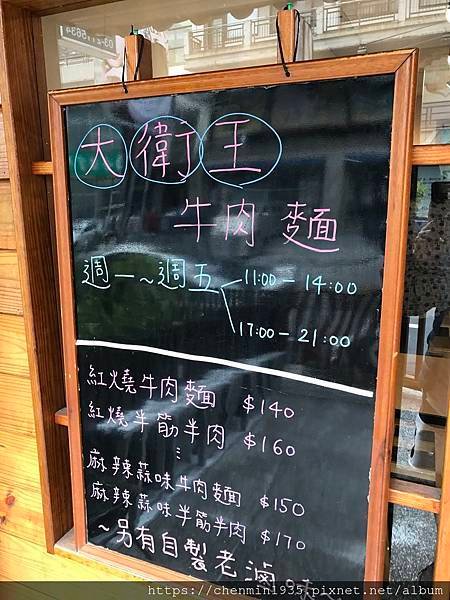 大衛王
牛肉麵
週一~週五 11:00 - 14:00
17:00 - 21:00
紅燒牛肉麵 $140
紅燒半筋半肉 $160
麻辣蒜味牛肉麵 $150
麻辣蒜味半筋半肉 $170
~另有自製老滷味
https://chenmin1935.pixnet.net/album